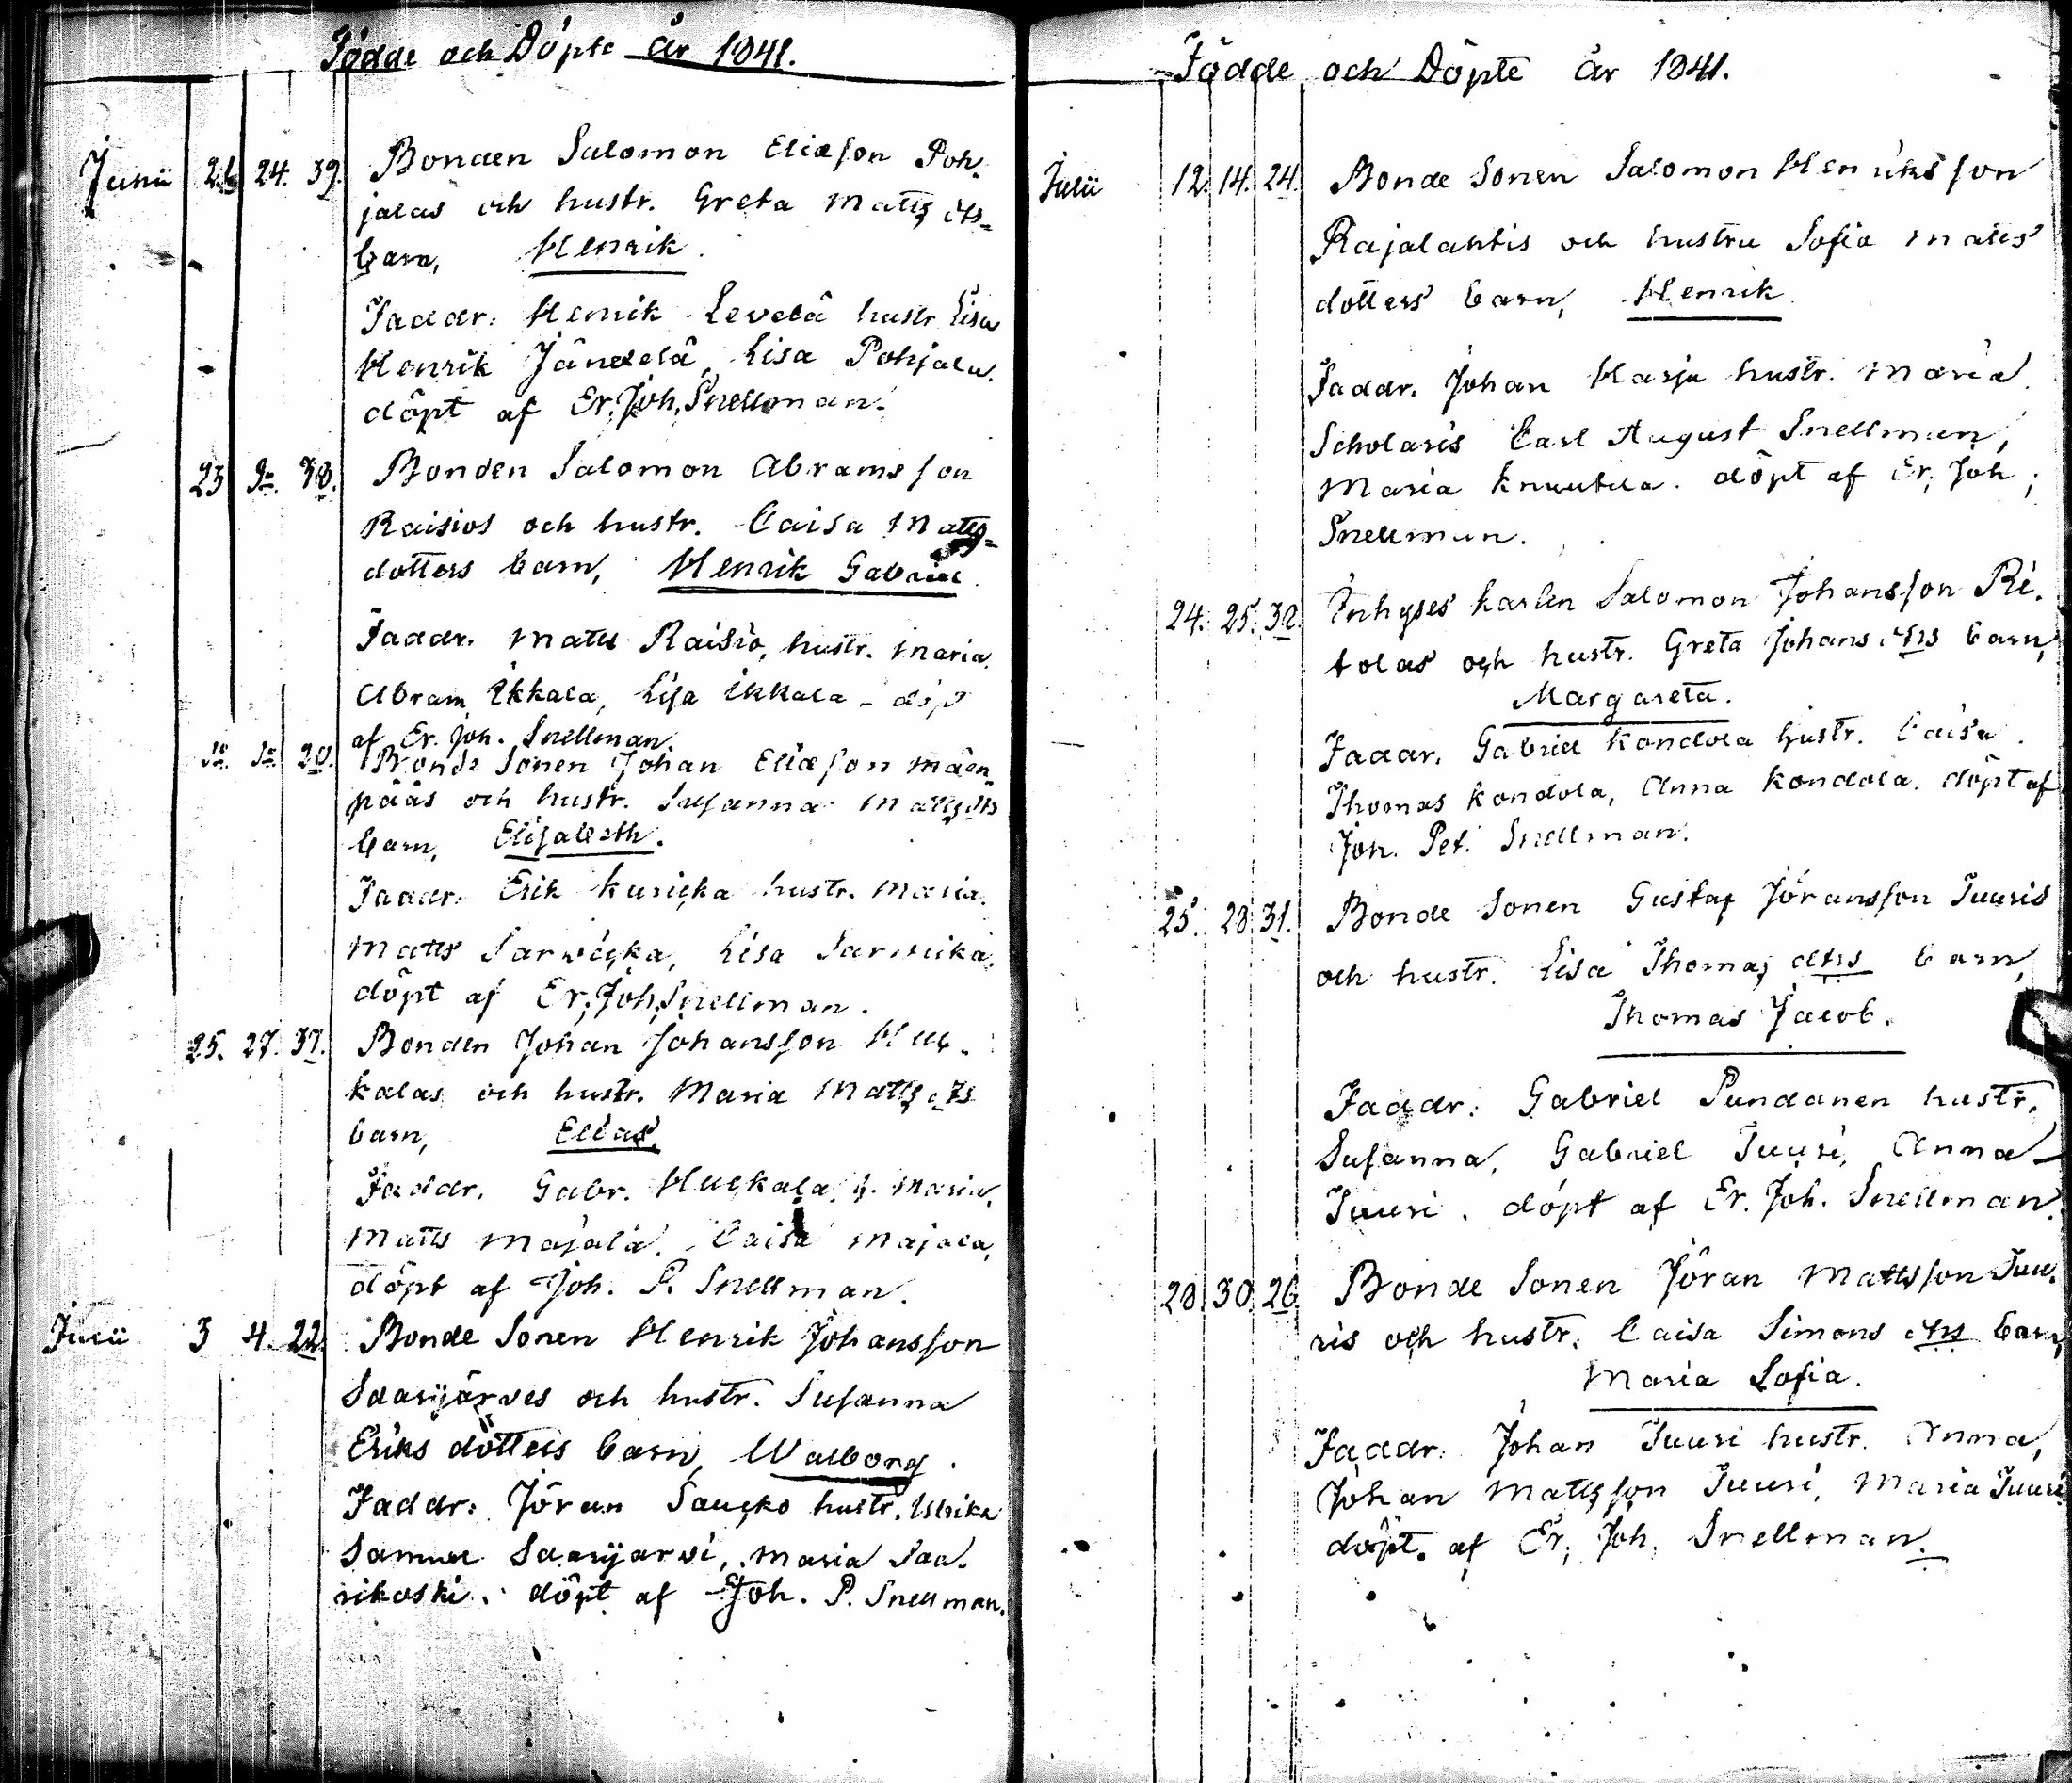 Födde och Döpte år 1841.
Junii 21. 24. 39. Bonden Salomon Eliæsson Poh-
jalas och hustr. Greta Matts dts
barn, Henrik.
Faddr: Henrik Levelä hustr Lisa
Henrik Lisa Pohjala.
döpt af Er. Joh. Snellman.
23 do. 38. Bonden Salomon Abramsson
Raisios och hustr. Caisa Matts-
dotters barn, Henrik Gabriel.
Faddr. Matts Raisio, hustr. Maria.
Abram Ikkala, Lisa Ikkala - döpt
af Er. Joh. Snellman
do. do. 20. Bonde Sonen Johan Eliæsson Mäen-
pääs och hustr. Susanna Matts dts
barn, Elisabeth.
Faddr. Erik Kuricka hustr. Maria.
Matts Sarvicka, Lisa Sarvicka.
döpt af Er. Joh. Snellman.
25. 27. 37. Bonden Johan Johansson Huc-
kalas och hustr. Maria Matts dts
barn, Elias.
Faddr. Gabr. Huckala, h. Maria.
Matts Majala. Caisa Majala,
döpt af Joh. P. Snellman.
Julii 3 4. 22. Bonde Sonen Henrik Johansson
Saarijärves och hustr. Susanna
Eriks dotters barn, Walborg.
Faddr: Jöran Saucko hustr. Ulrika
Samuel Saarijarvi, Maria Saa-
rikoski. döpt af Joh. P. Snellman.
Födde och Döpte År 1841.
Julii 12. 14. 24. Bonde Sonen Salomon Henriksson
Rajalahtis och hustru Sofia Matts
dotters barn, Henrik
Faddr. Johan Harju hustr. Maria.
Scholaris Carl August Snellman,
Maria Knuutila. döpt af Er. Joh.
Snellman.
24. 25. 32. Inhyses karlen Salomon Johansson Ri-
tolas och hustr. Greta Johans dtrs barn,
Margareta.
Faddr. Gabriel Kondola hustr. Caisa.
Thomas Kondola, Anna Kondola. döpt af
Joh. Pet. Snellman.
25. 28. 31. Bonde Sonen Gustaf Jöransson Juuris
och hustr. Lisa Thomas dtrs barn,
Thomas Jacob.
Faddr: Gabriel Pundanen hustr.
Susanna, Gabriel Juuri, Anna
Juuri. döpt af Er. Joh. Snellman.
28. 30. 26. Bonde Sonen Jöran Mattsson Juu-
ris och hustr. Caisa Simons dtrs barn,
Maria Sofia.
Faddr: Johan Juuri hustr. Anna,
Johan Mattsson Juuri, Maria Juuri
döpt. af Er. Joh. Snellman.